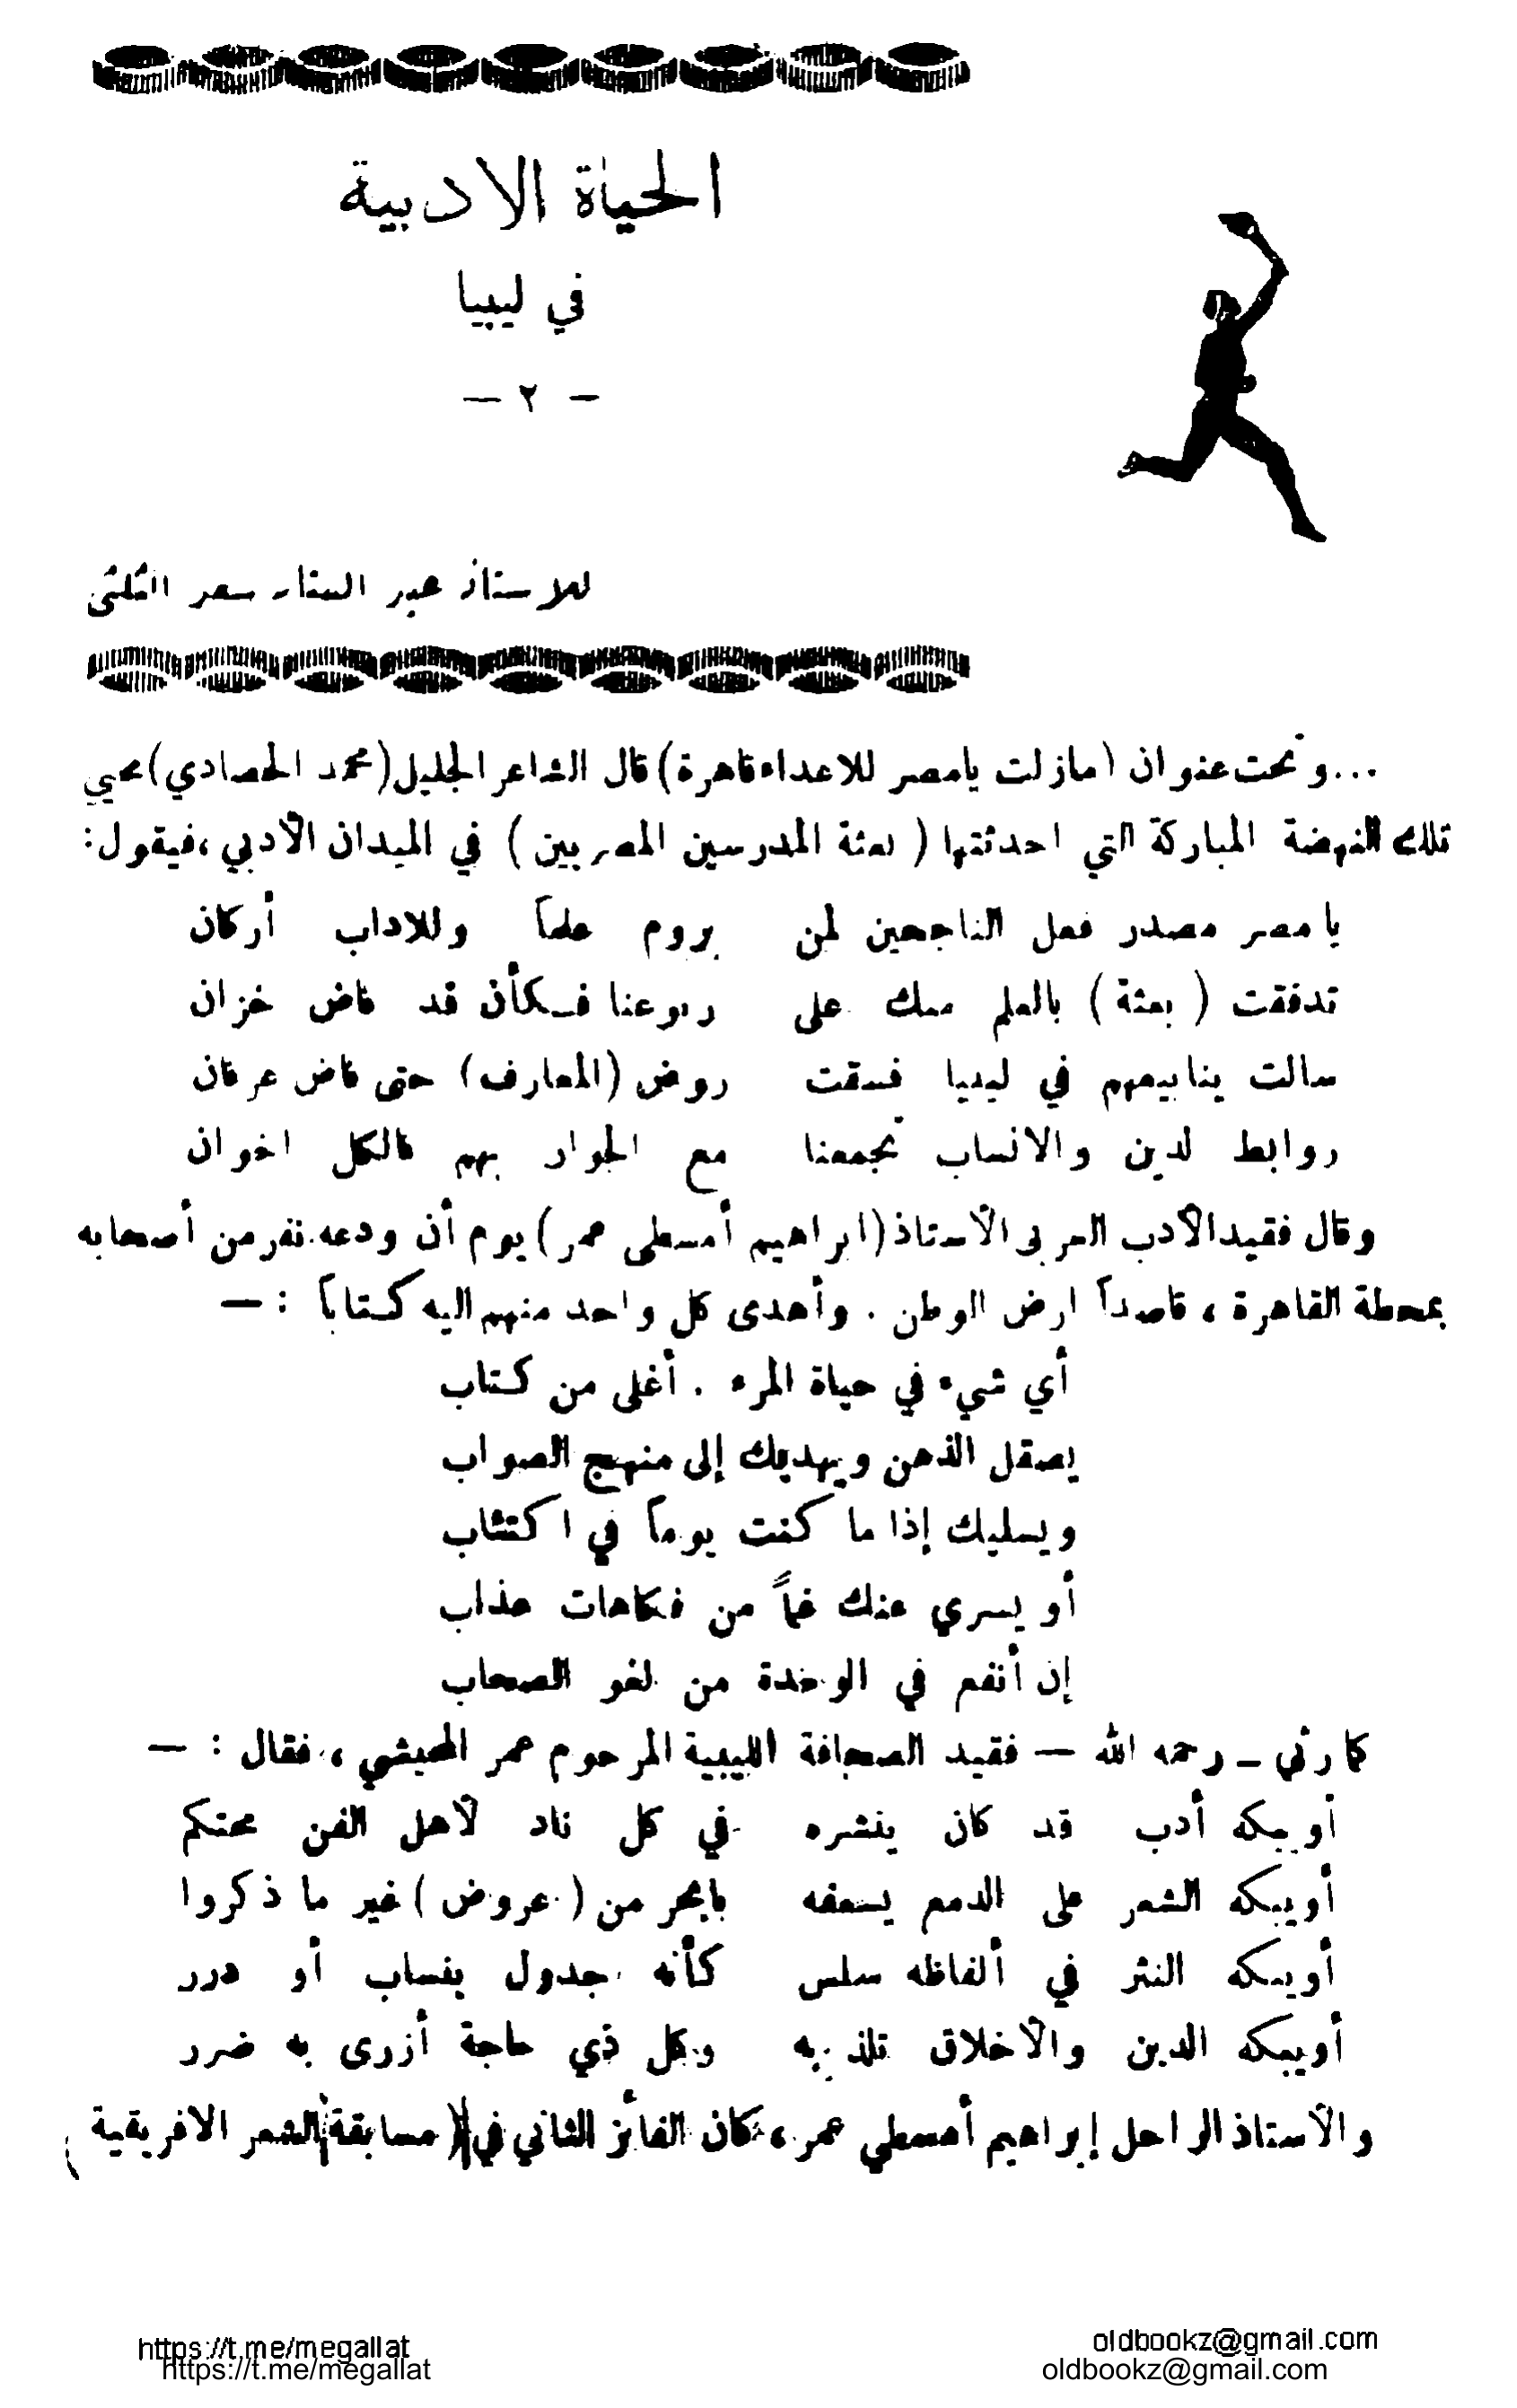 الحياة الادبية
في ليبيا
— ٢ —
للاستاذ عبد الستار سعد الثلثى
...وتحت عنوان (مازلت يامصر للاعداء قاهرة) قال الشاعر الجليل (محمد الحصادي) محيي
تلك النهضة المباركة التي احدثتها ( بعثة المدرسين المصريين ) في الميدان الأدبي ، فيقول:
يا مصر مصدر فعل الناجحين لمن يروم علماً وللاداب أركان
تدفقت ( بعثة ) بالعلم منك على ربوعنا فكأن قد فاض خزان
سالت ينابيعهم في ليبيا فسقت روض (المعارف) حتى فاض عرفان
روابط لدين والانساب تجمعنا مع الجوار بهم فالكل اخوان
وقال فقيد الأدب العربى الأستاذ (ابراهيم أمسطى عمر) يوم أن ودعه نفر من أصحابه
بمحطة القاهرة ، قاصداً ارض الوطن . وأهدى كل واحد منهم اليه كتاباً : —
أي شيء في حياة المرء . أغلى من كتاب
يصقل الذهن ويهديك إلى منهج الصواب
ويسليك إذا ما كنت يوماً في اكتئاب
أو يسري عنك غماً من فكاهات عذاب
إن أنفع في الوحدة من لغو الصحاب
كما رثي — رحمه الله — فقيد الصحافة الليبية المرحوم عمر المحيشي ، فقال : —
أو يبكه أدب قد كان ينشره في كل ناد لأهل الفن محتكم
أويبكه الشعر على الدمع يسعفه بابحر من ( عروض ) غير ما ذكروا
أويبكه النثر في ألفاظه سلس كأنه جدول ينساب أو درر
أويبكه الدين والأخلاق تلذ به وكل ذي حاجة أزرى به ضرر
والأستاذ الراحل إبراهيم أمسطي عمر ، كان الفائز الثاني في ( مسابقة الشعر الافريقية )
https://t.me/megallat
oldbookz@gmail.com
https://t.me/megallat
oldbookz@gmail.com